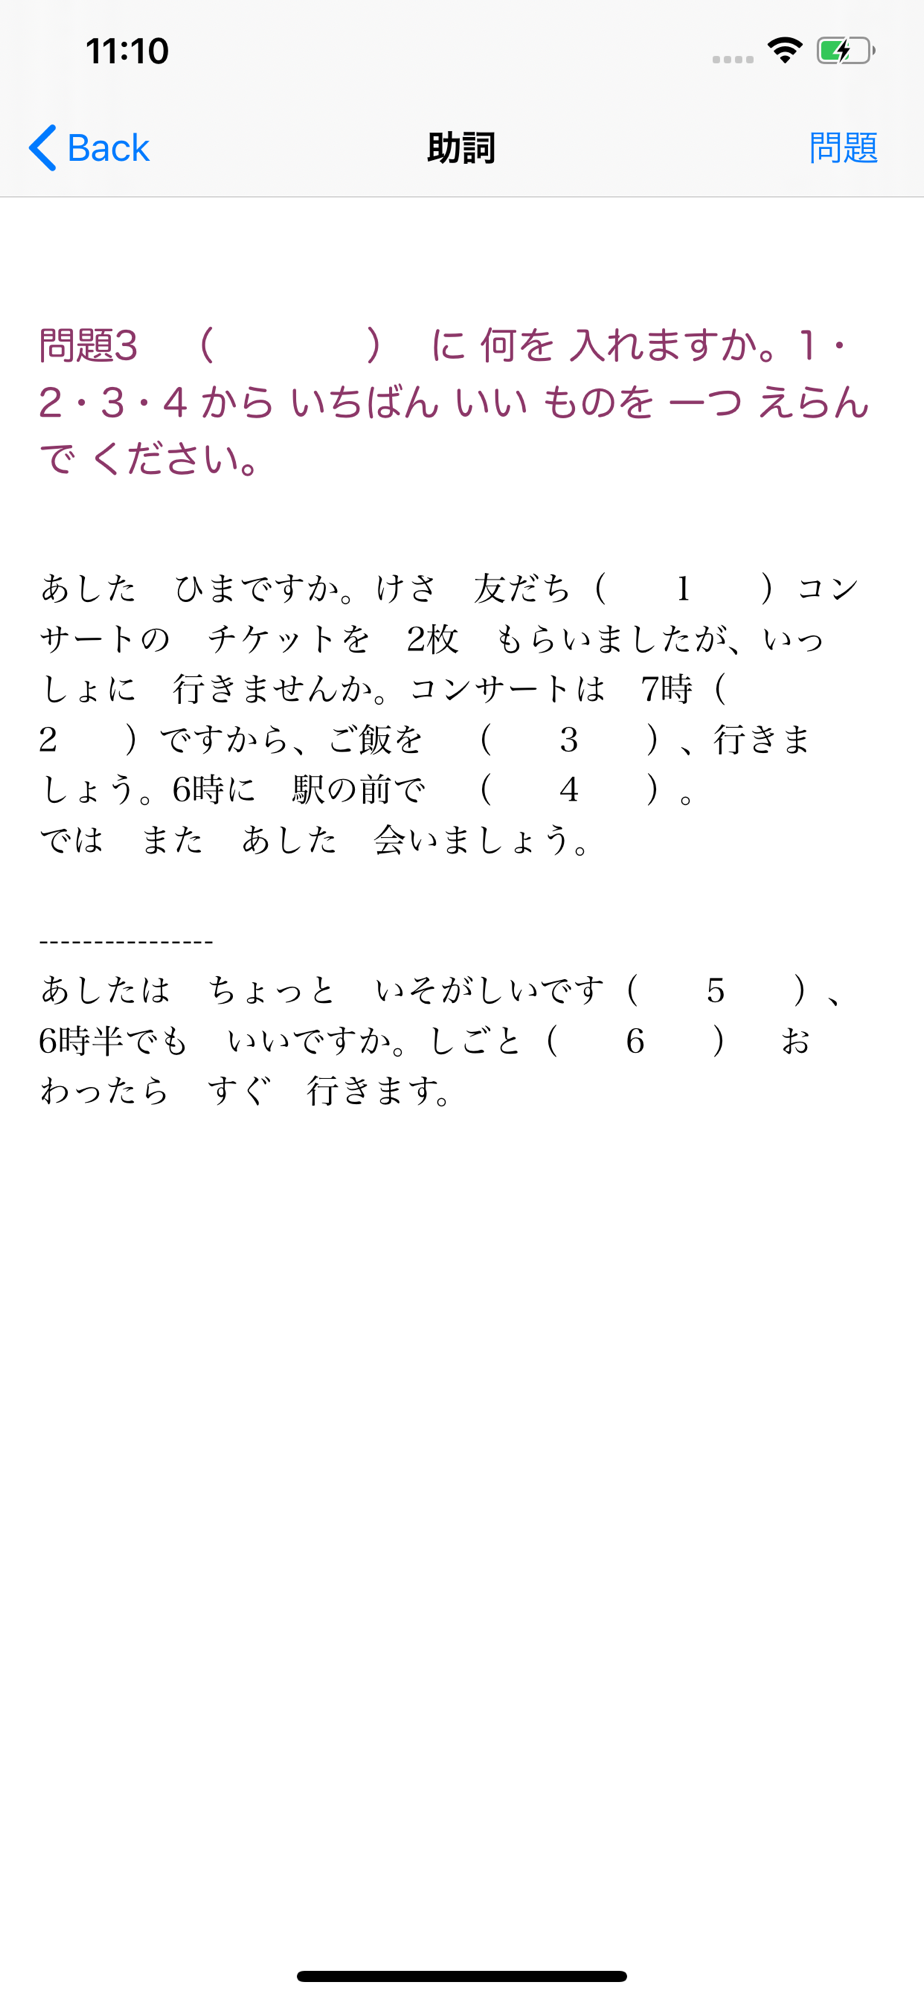 11:10
Back 助詞 問題
問題3　（　　　　）　に 何を 入れますか。1・
2・3・4 から いちばん いい ものを 一つ えらん
で ください。
あした　ひまですか。けさ　友だち（　　1　　）コン
サートの　チケットを　2枚　もらいましたが、いっ
しょに　行きませんか。コンサートは　7時（
2　　）ですから、ご飯を　（　　3　　）、行きま
しょう。6時に　駅の前で　（　　4　　）。
では　また　あした　会いましょう。
----------------
あしたは　ちょっと　いそがしいです（　　5　　）、
6時半でも　いいですか。しごと（　　6　　）　お
わったら　すぐ　行きます。